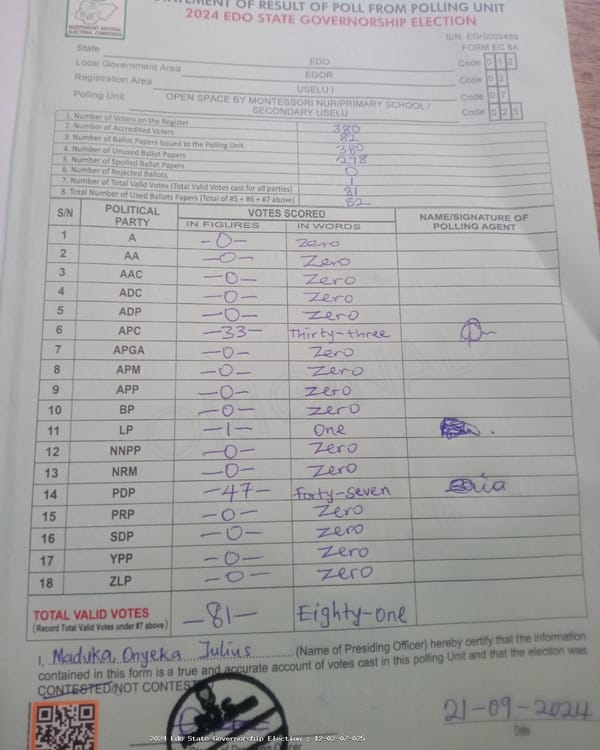 STATEMENT OF RESULT OF POLL FROM POLLING UNIT
2024 EDO STATE GOVERNORSHIP ELECTION
INEC
INDEPENDENT NATIONAL ELECTORAL COMMISSION
S/N: EG/0000489
FORM EC 8A
State EDO Code 0 1 2
Local Government Area EGOR Code 0 2
Registration Area USELU I Code 0 7
Polling Unit OPEN SPACE BY MONTESSORI NUR/PRIMARY SCHOOL / SECONDARY USELU Code 0 2 5
1. Number of Voters on the Register 380
2. Number of Accredited Voters 82
3. Number of Ballot Papers Issued to the Polling Unit 380
4. Number of Unused Ballot Papers 298
5. Number of Spoiled Ballot Papers 0
6. Number of Rejected Ballots 1
7. Number of Total Valid Votes (Total Valid Votes cast for all parties) 81
8. Total Number of Used Ballots Papers (Total of #5 + #6 + #7 above) 82
S/N POLITICAL PARTY VOTES SCORED NAME/SIGNATURE OF POLLING AGENT
IN FIGURES IN WORDS
1 A -0- Zero
2 AA -0- Zero
3 AAC -0- Zero
4 ADC -0- Zero
5 ADP -0- Zero
6 APC -33- Thirty-three
7 APGA -0- Zero
8 APM -0- Zero
9 APP -0- Zero
10 BP -0- Zero
11 LP -1- One
12 NNPP -0- Zero
13 NRM -0- Zero
14 PDP -47- Forty-seven
15 PRP -0- Zero
16 SDP -0- Zero
17 YPP -0- Zero
18 ZLP -0- Zero
TOTAL VALID VOTES -81- Eighty-One
(Record Total Valid Votes under #7 above)
I, Maduka, Onyeka Julius (Name of Presiding Officer) hereby certify that the information
contained in this form is a true and accurate account of votes cast in this polling Unit and that the election was
CONTESTED/NOT CONTEST
21-09-2024
Date
2024 Edo State Governorship Election : 12-02-07-025